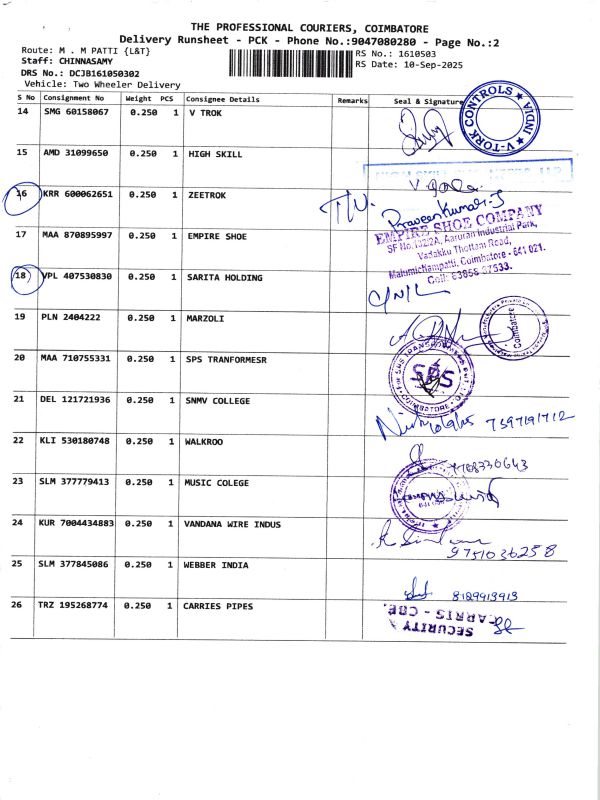 THE PROFESSIONAL COURIERS, COIMBATORE
Delivery Runsheet - PCK - Phone No.:9047080280 - Page No.:2
Route: M . M PATTI {L&T}
RS No.: 1610503
Staff: CHINNASAMY
RS Date: 10-Sep-2025
DRS No.: DCJB161050302
Vehicle: Two Wheeler Delivery
S No Consignment No Weight PCS Consignee Details Remarks Seal & Signature
14 SMG 60158067 0.250 1 V TROK
V-TORK CONTROLS INDIA
15 AMD 31099650 0.250 1 HIGH SKILL
16 KRR 600062651 0.250 1 ZEETROK
Praveen Kumar.J
17 MAA 870895997 0.250 1 EMPIRE SHOE
EMPIRE SHOE COMPANY
SF No.132/2A, Aaruran Industrial Park,
Vadakku Thottam Road,
Malumichampatti, Coimbatore - 641 021.
18 VPL 407530830 0.250 1 SARITA HOLDING
19 PLN 2404222 0.250 1 MARZOLI
Coimbatore
20 MAA 710755331 0.250 1 SPS TRANFORMESR
SPS
COIMBATORE
21 DEL 121721936 0.250 1 SNMV COLLEGE
7397191712
22 KLI 530180748 0.250 1 WALKROO
7708330643
23 SLM 377779413 0.250 1 MUSIC COLEGE
24 KUR 7004434883 0.250 1 VANDANA WIRE INDUS
9751036258
25 SLM 377845086 0.250 1 WEBBER INDIA
8129913913
26 TRZ 195268774 0.250 1 CARRIES PIPES
CARRIS - CBE.
SECURITY